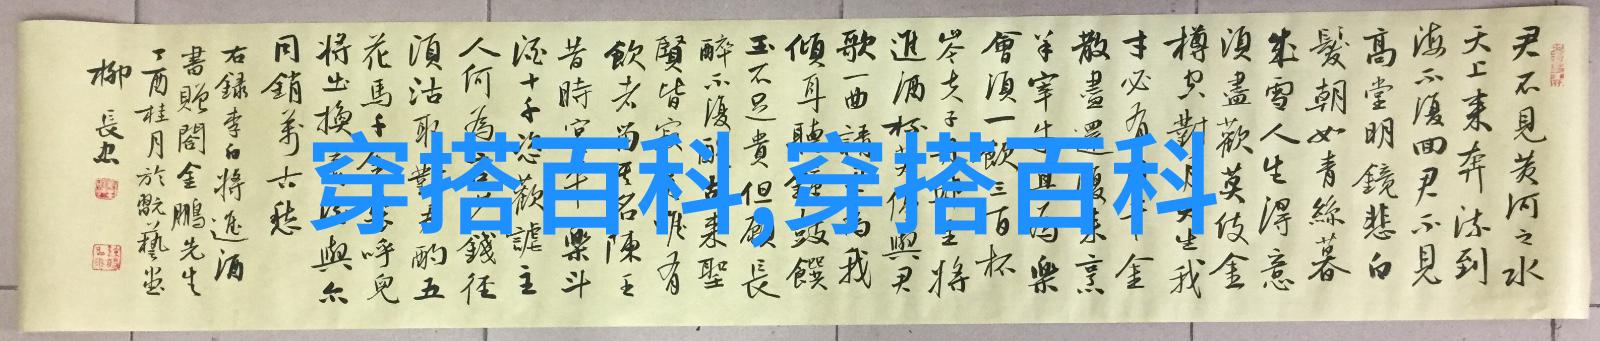 君不見黃河之水
天上来奔流到
海不復回君不見
高堂明鏡悲白
髮朝如青絲暮
成雪人生得意
須盡歡莫使金
樽空對月天生我
才必有千金
散盡還復来烹
羊宰牛且為樂
會須一飲三百杯
岑夫子生將
進酒杯莫停與君
歌一曲請為我
傾耳聽鐘鼓饌
玉不足貴但願長
醉不復醒古来聖
賢皆寂惟有
飲者留其名陳王
昔時宴平樂斗
酒十千恣歡謔主
人何為言少錢徑
須沽取對君酌五
花馬千金裘呼兒
將出換美酒與尔
同銷萬古愁
右録李白將進酒
書贈閻金鵬先生
丁酉桂月於翫藝堂
柳長忠
穿搭百科,穿搭百科